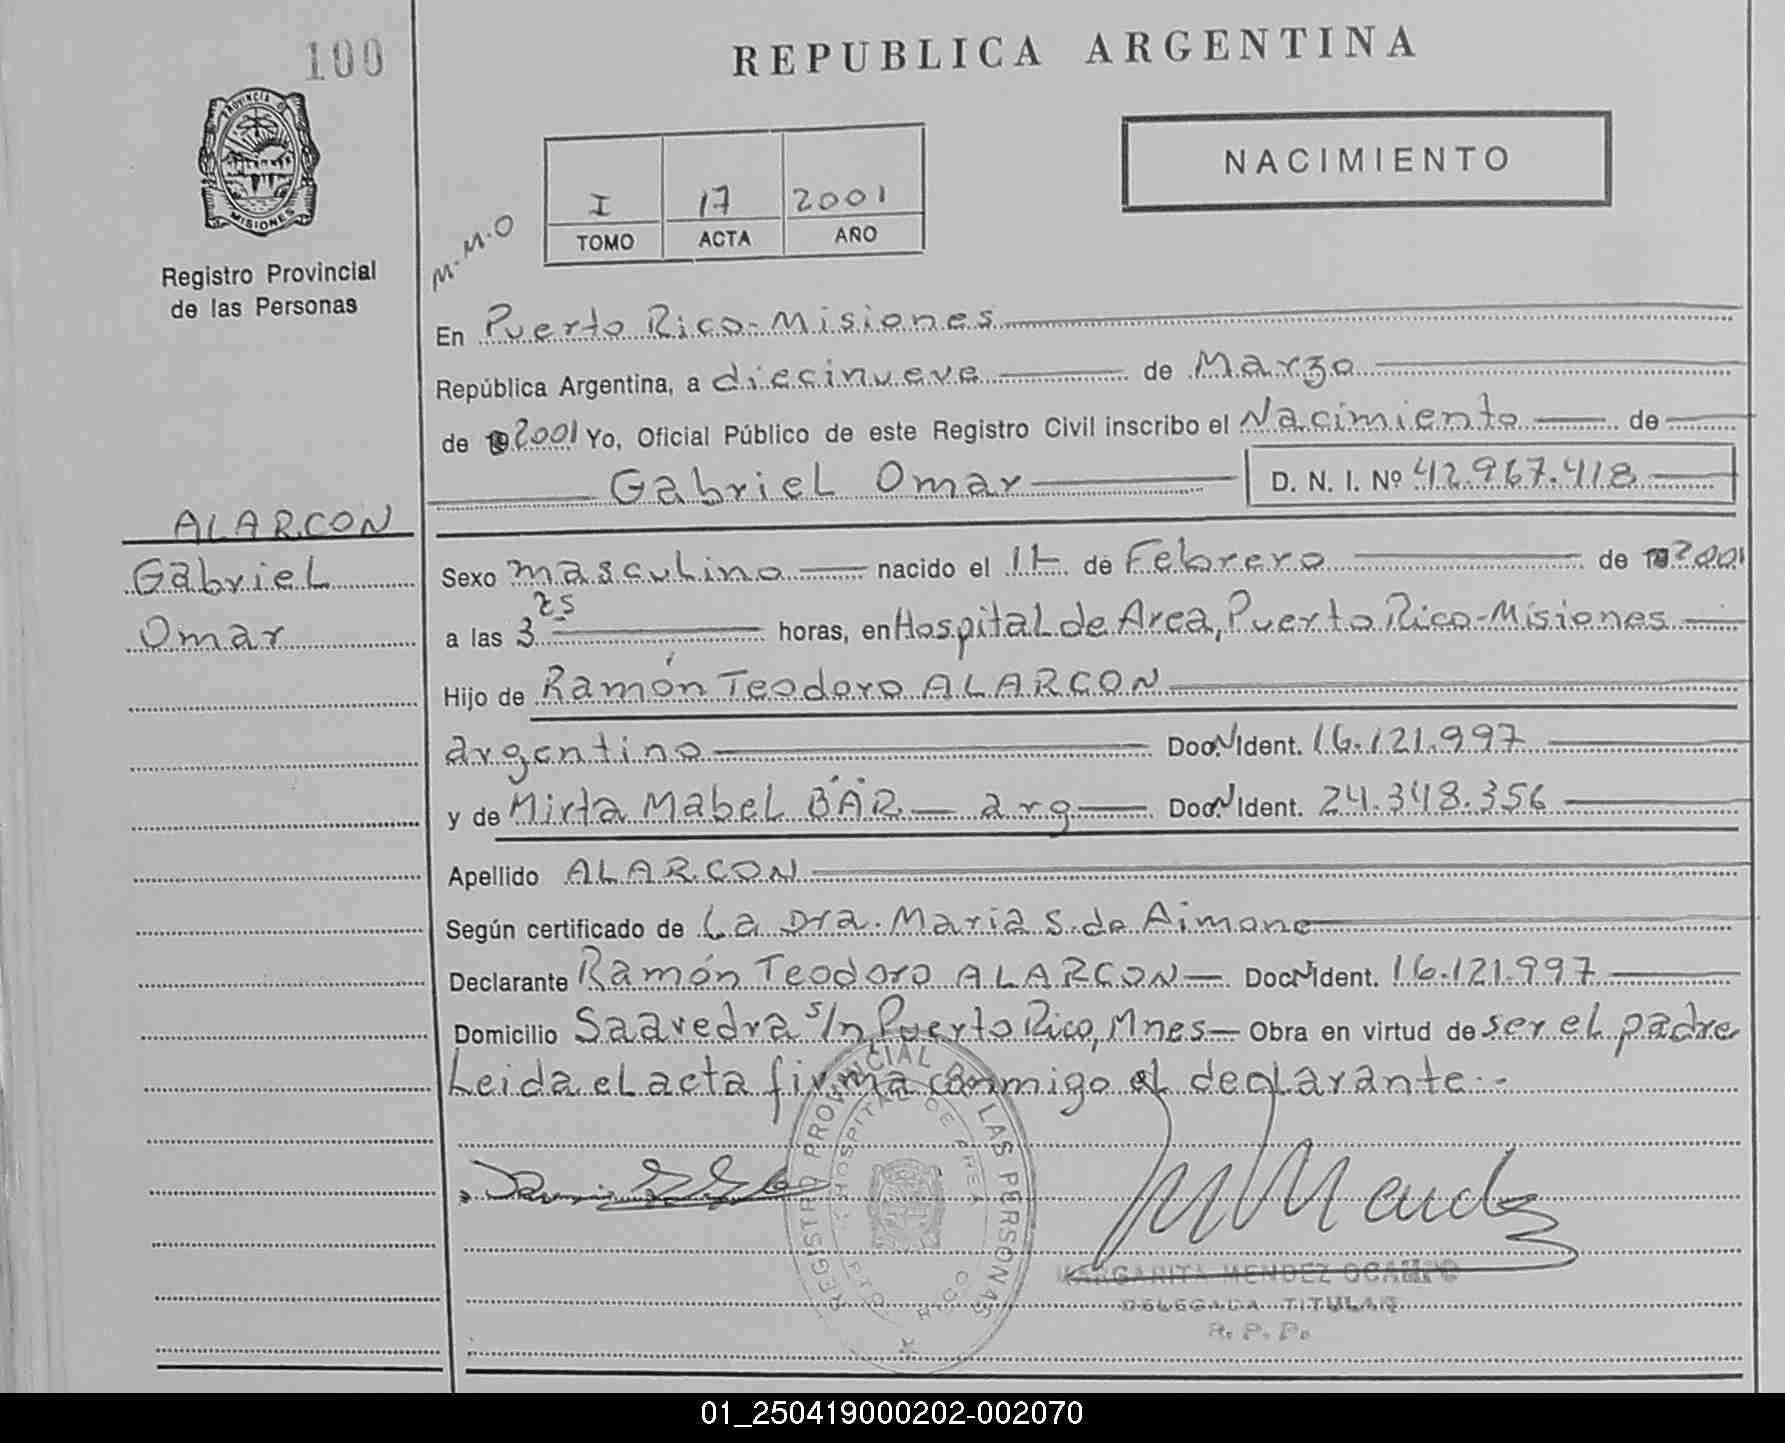 100
REPUBLICA ARGENTINA
PROVINCIA DE
MISIONES
NACIMIENTO
I 17 2001
TOMO ACTA AÑO
M.M.O
Registro Provincial
de las Personas
En Puerto Rico-Misiones
República Argentina, a diecinueve de Marzo
de 2001 Yo, Oficial Público de este Registro Civil inscribo el Nacimiento de
Gabriel Omar D. N. I. Nº 42.967.418
ALARCON
Gabriel
Omar
Sexo masculino nacido el de Febrero de 2001
a las 3 25 horas, en Hospital de Area, Puerto Rico-Misiones
Hijo de Ramón Teodoro ALARCON
argentino Doc. N Ident. 16.121.997
y de Mirta Mabel BÄR arg Doc. N Ident. 24.348.356
Apellido ALARCON
Según certificado de La Dra. Maria S. de Aimone
Declarante Ramón Teodoro ALARCON Doc. N Ident. 16.121.997
Domicilio Saavedra s/n Puerto Rico, Mnes Obra en virtud de ser el padre
Leida el acta firma conmigo el declarante.-
REGISTRO PROVINCIAL DE LAS PERSONAS
HOSPITAL DE AREA
PTO. RICO
MARGARITA MENDEZ OCAMPO
DELEGADA TITULAR
R. P. P.
01_250419000202-002070